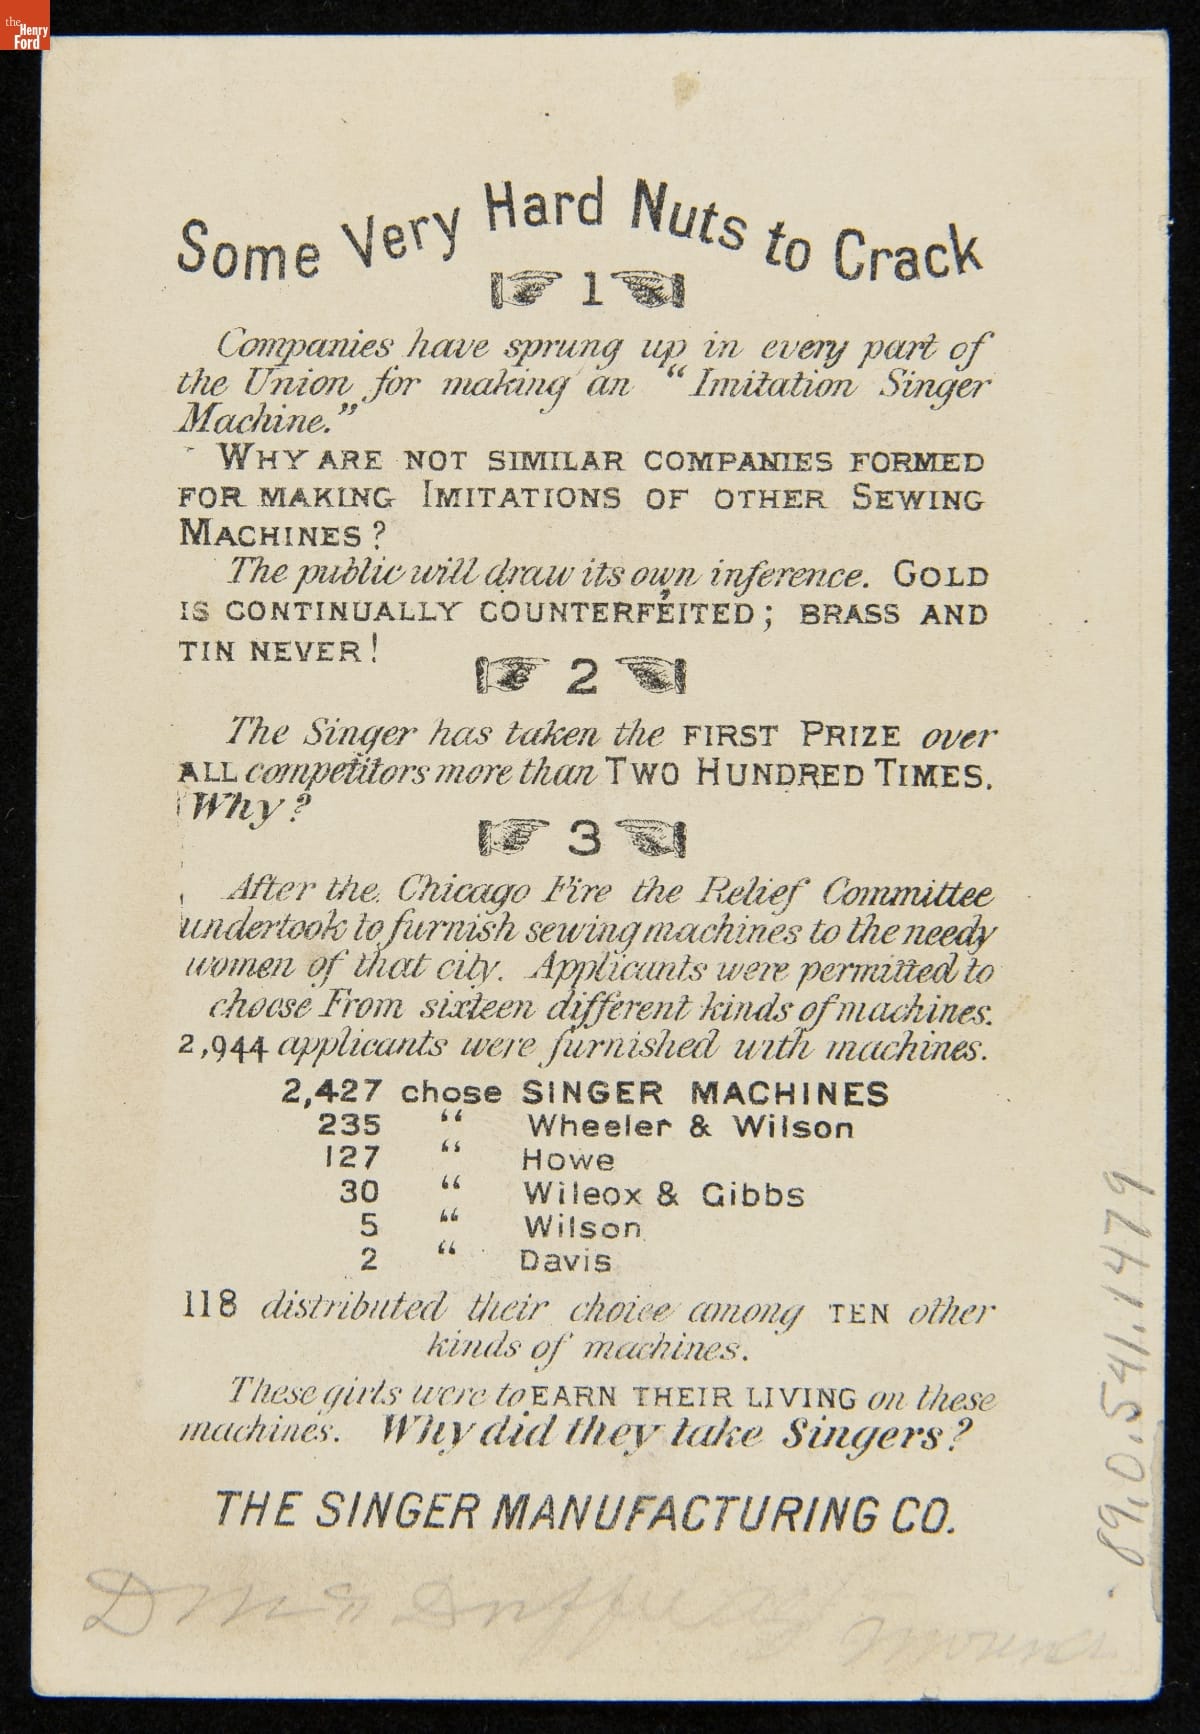 the
Henry
Ford
Some Very Hard Nuts to Crack
1
Companies have sprung up in every part of
the Union for making an "Imitation Singer
Machine."
WHY ARE NOT SIMILAR COMPANIES FORMED
FOR MAKING IMITATIONS OF OTHER SEWING
MACHINES?
The public will draw its own inference. GOLD
IS CONTINUALLY COUNTERFEITED; BRASS AND
TIN NEVER!
2
The Singer has taken the FIRST PRIZE over
ALL competitors more than TWO HUNDRED TIMES.
Why?
3
After the Chicago Fire the Relief Committee
undertook to furnish sewing machines to the needy
women of that city. Applicants were permitted to
choose From sixteen different kinds of machines.
2,944 applicants were furnished with machines.
2,427 chose SINGER MACHINES
235 " Wheeler & Wilson
127 " Howe
30 " Wilcox & Gibbs
5 " Wilson
2 " Davis
118 distributed their choice among TEN other
kinds of machines.
These girls were to EARN THEIR LIVING on these
machines. Why did they take Singers?
THE SINGER MANUFACTURING CO.
89.0.541.1479